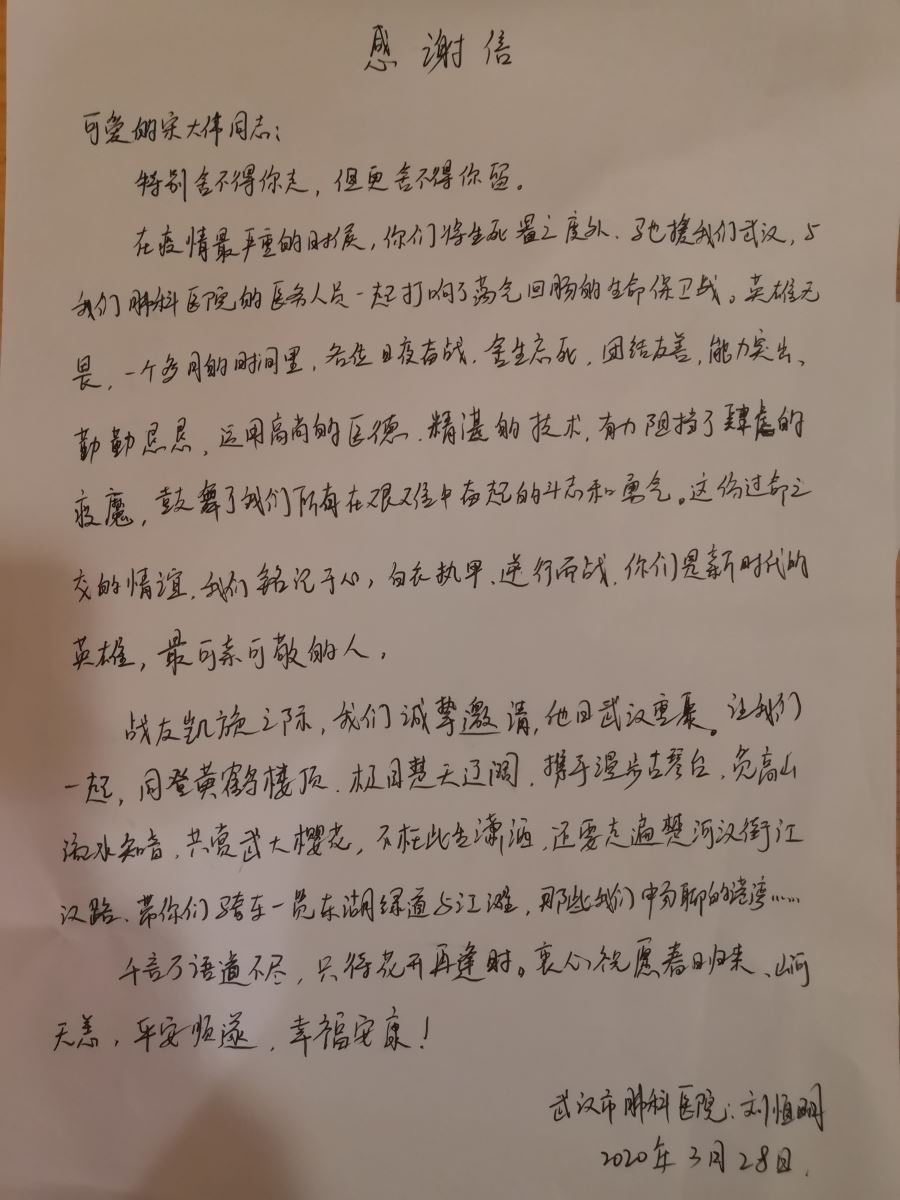 感谢信
可爱的宋大伟同志：
特别舍不得你走，但更舍不得你留。
在疫情最严重的时候，你们将生死置之度外、驰援我们武汉，与
我们肺科医院的医务人员一起打响了荡气回肠的生命保卫战。英雄无
畏，一个多月的时间里，各位日夜奋战、舍生忘死，团结友善，能力突出、
勤勤恳恳，运用高尚的医德、精湛的技术，有力阻挡了肆虐的
疫魔，鼓舞了我们所有在艰难中奋起的斗志和勇气。这份过命之
交的情谊，我们铭记于心，白衣执甲、逆行而战，你们是新时代的
英雄，最可亲可敬的人，
战友凯旋之际，我们诚挚邀请，他日武汉重聚。让我们
一起，同登黄鹤楼顶、极目楚天辽阔，携手漫步古琴台，觅高山
流水知音，共赏武大樱花，不枉此生潇洒，还要走遍楚河汉街江
汉路、带你们骑车一览东湖绿道与江滩，那些我们中畅聊的港湾……
千言万语道不尽，只待花开再逢时。衷心祝愿春日归来、山河
无恙，平安顺遂，幸福安康！
武汉市肺科医院：刘恒明
2020年3月28日